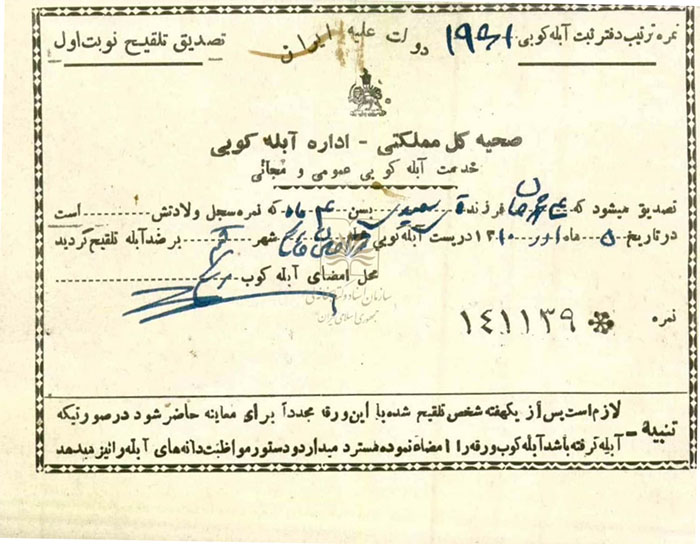 نمره ترتیب دفتر ثبت آبله کوبی ۱۹۵۱ دولت علیه ایران تصدیق تلقیح نوبت اول
صحیه کل مملکتی - اداره آبله کوبی
خدمت آبله کوبی عمومی و مجانی
تصدیق میشود که فرزند آ بسن ۴ ماه که نمره سجل ولادتش است
در تاریخ ۵ ماه ۱۳۱۰ در پست آبله کوبی شهر بر ضد آبله تلقیح گردید
محل امضای آبله کوب
سازمان اسناد و کتابخانه ملی
جمهوری اسلامی ایران
نمره ۱۴۱۱۳۹
تنبیه - لازم است پس از یکهفته شخص تلقیح شده با این ورقه مجدداً برای معاینه حاضر شود در صورتیکه
آبله گرفته باشد آبله کوب ورقه را امضاء نموده مسترد میدارد و دستور مواظبت دانه های آبله را نیز میدهد